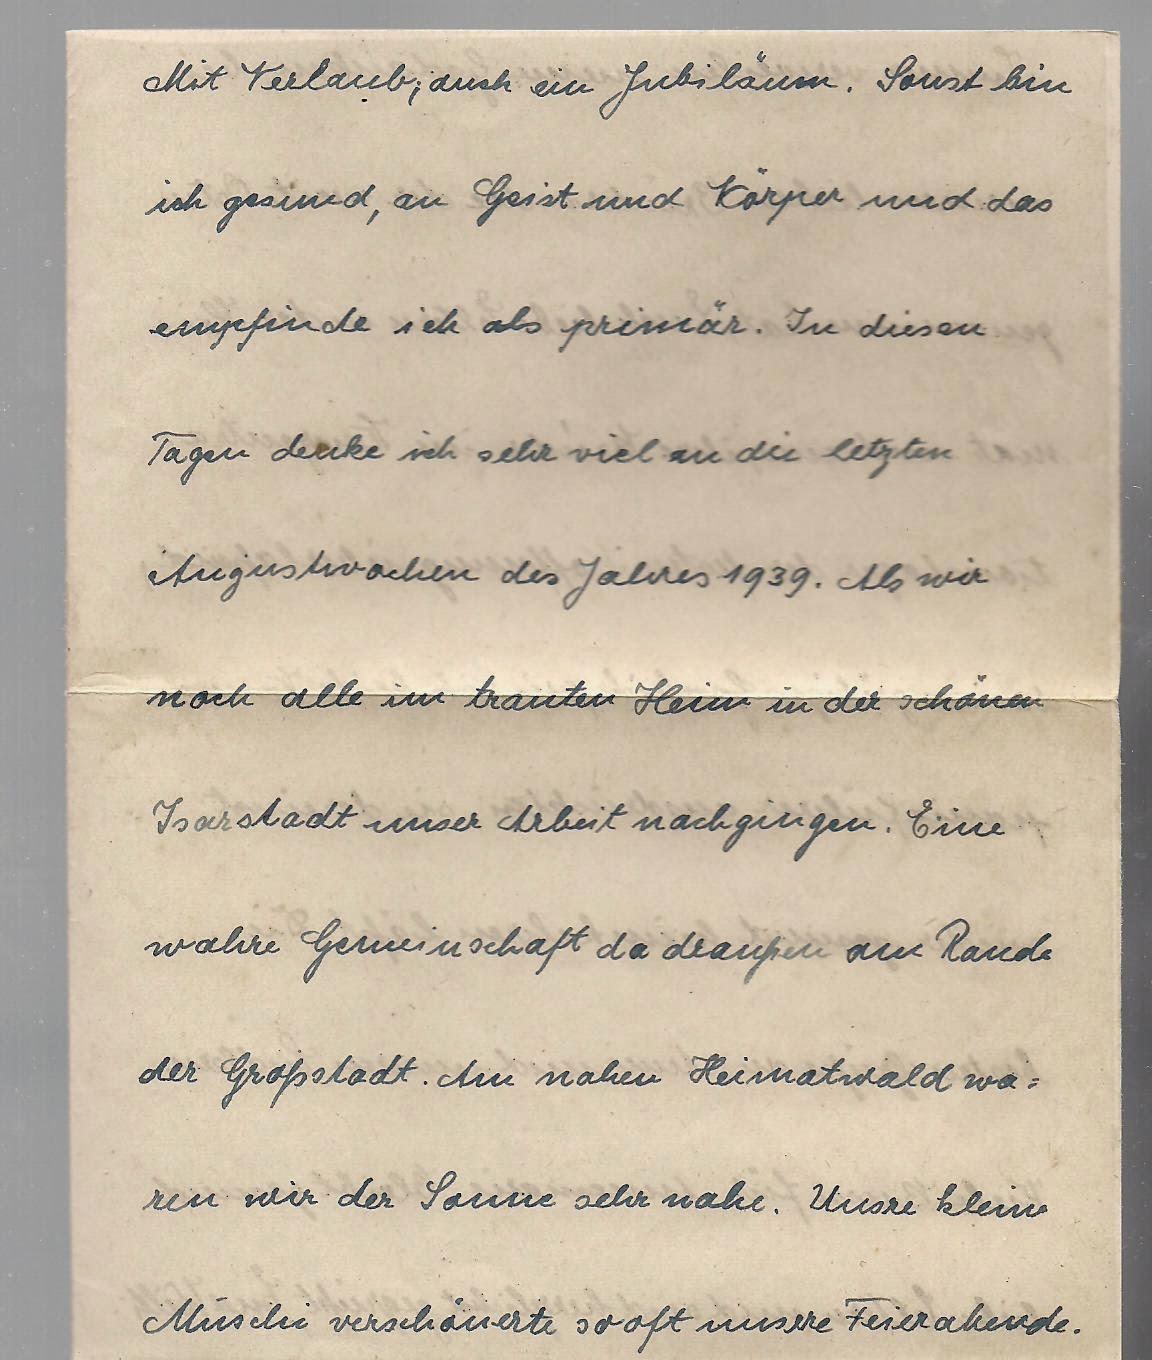 Mit Verlaub; auch ein Jubiläum. Sonst bin
ich gesund, an Geist und Körper und das
empfinde ich als primär. In diesen
Tagen denke ich sehr viel an die letzten
Augustwochen des Jahres 1939. Als wir
noch alle im trauten Heim in der schönen
Isarstadt unser Arbeit nachgingen. Eine
wahre Gemeinschaft da draußen am Rande
der Großstadt. Am nahen Heimatwald wa=
ren wir der Sonne sehr nahe. Unsre kleine
Muschi verschönerte so oft unsere Feierabende.